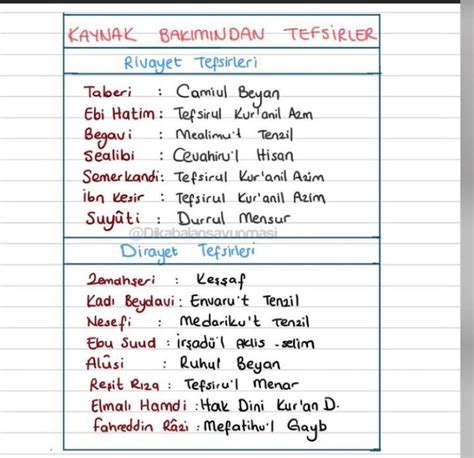 KAYNAK BAKIMINDAN TEFSİRLER
Rivayet Tefsirleri
Taberi : Camiul Beyan
Ebi Hatim : Tefsirul Kur'anil Azm
Begavi : Mealimu't Tenzil
Sealibi : Cevahiru'l Hisan
Semerkandi : Tefsirul Kur'anil Azim
İbn Kesir : Tefsirul Kur'anil Azim
Suyûti : Durrul Mensur
@Dikabalapsavunmasi
Dirayet Tefsirleri
Zemahşeri : Keşşaf
Kadı Beydavi : Envaru't Tenzil
Nesefi : Medariku't Tenzil
Ebu Suud : irşadü'l Aklis -selim
Alûsi : Ruhul Beyan
Reşit Rıza : Tefsiru'l Menar
Elmalı Hamdi : Hak Dini Kur'an D.
Fahreddin Râzi : Mefatihu'l Gayb